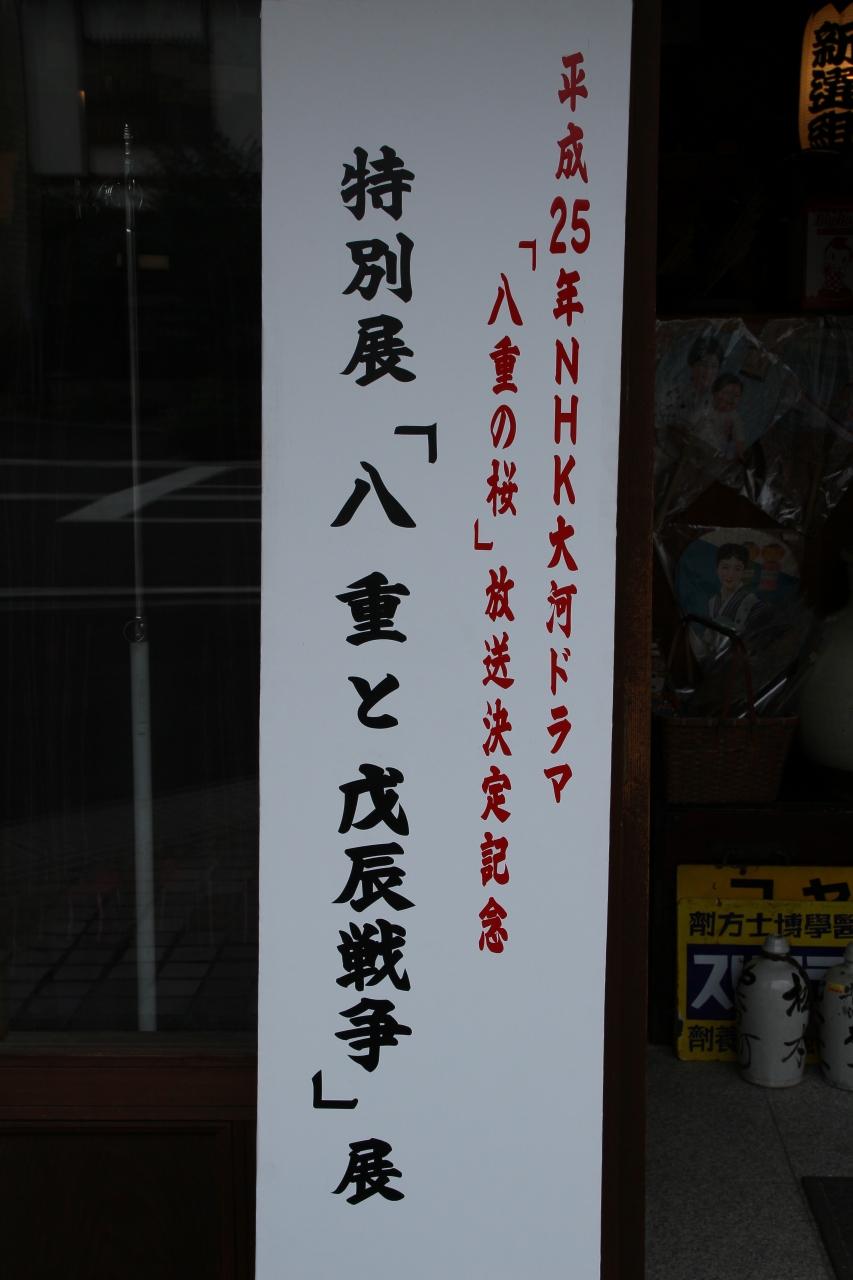 平成25年NHK大河ドラマ
「八重の桜」放送決定記念
特別展「八重と戊辰戦争」展
新選組
劑方士博學醫